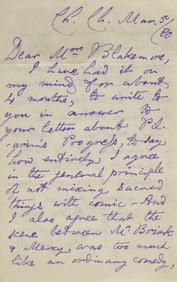 Ch. Ch. Mar. 5/80
Dear Mrs Blakemore,
I have had it on
my mind for about
4 months, to write to
you in answer to
your letter about Pil-
grim's Progress, to say
how entirely I agree
in the general principle
of not mixing sacred
things with comic - And
I also agree that the
scene between Mr Brisk
& Mercy was too much
like an ordinary comedy,